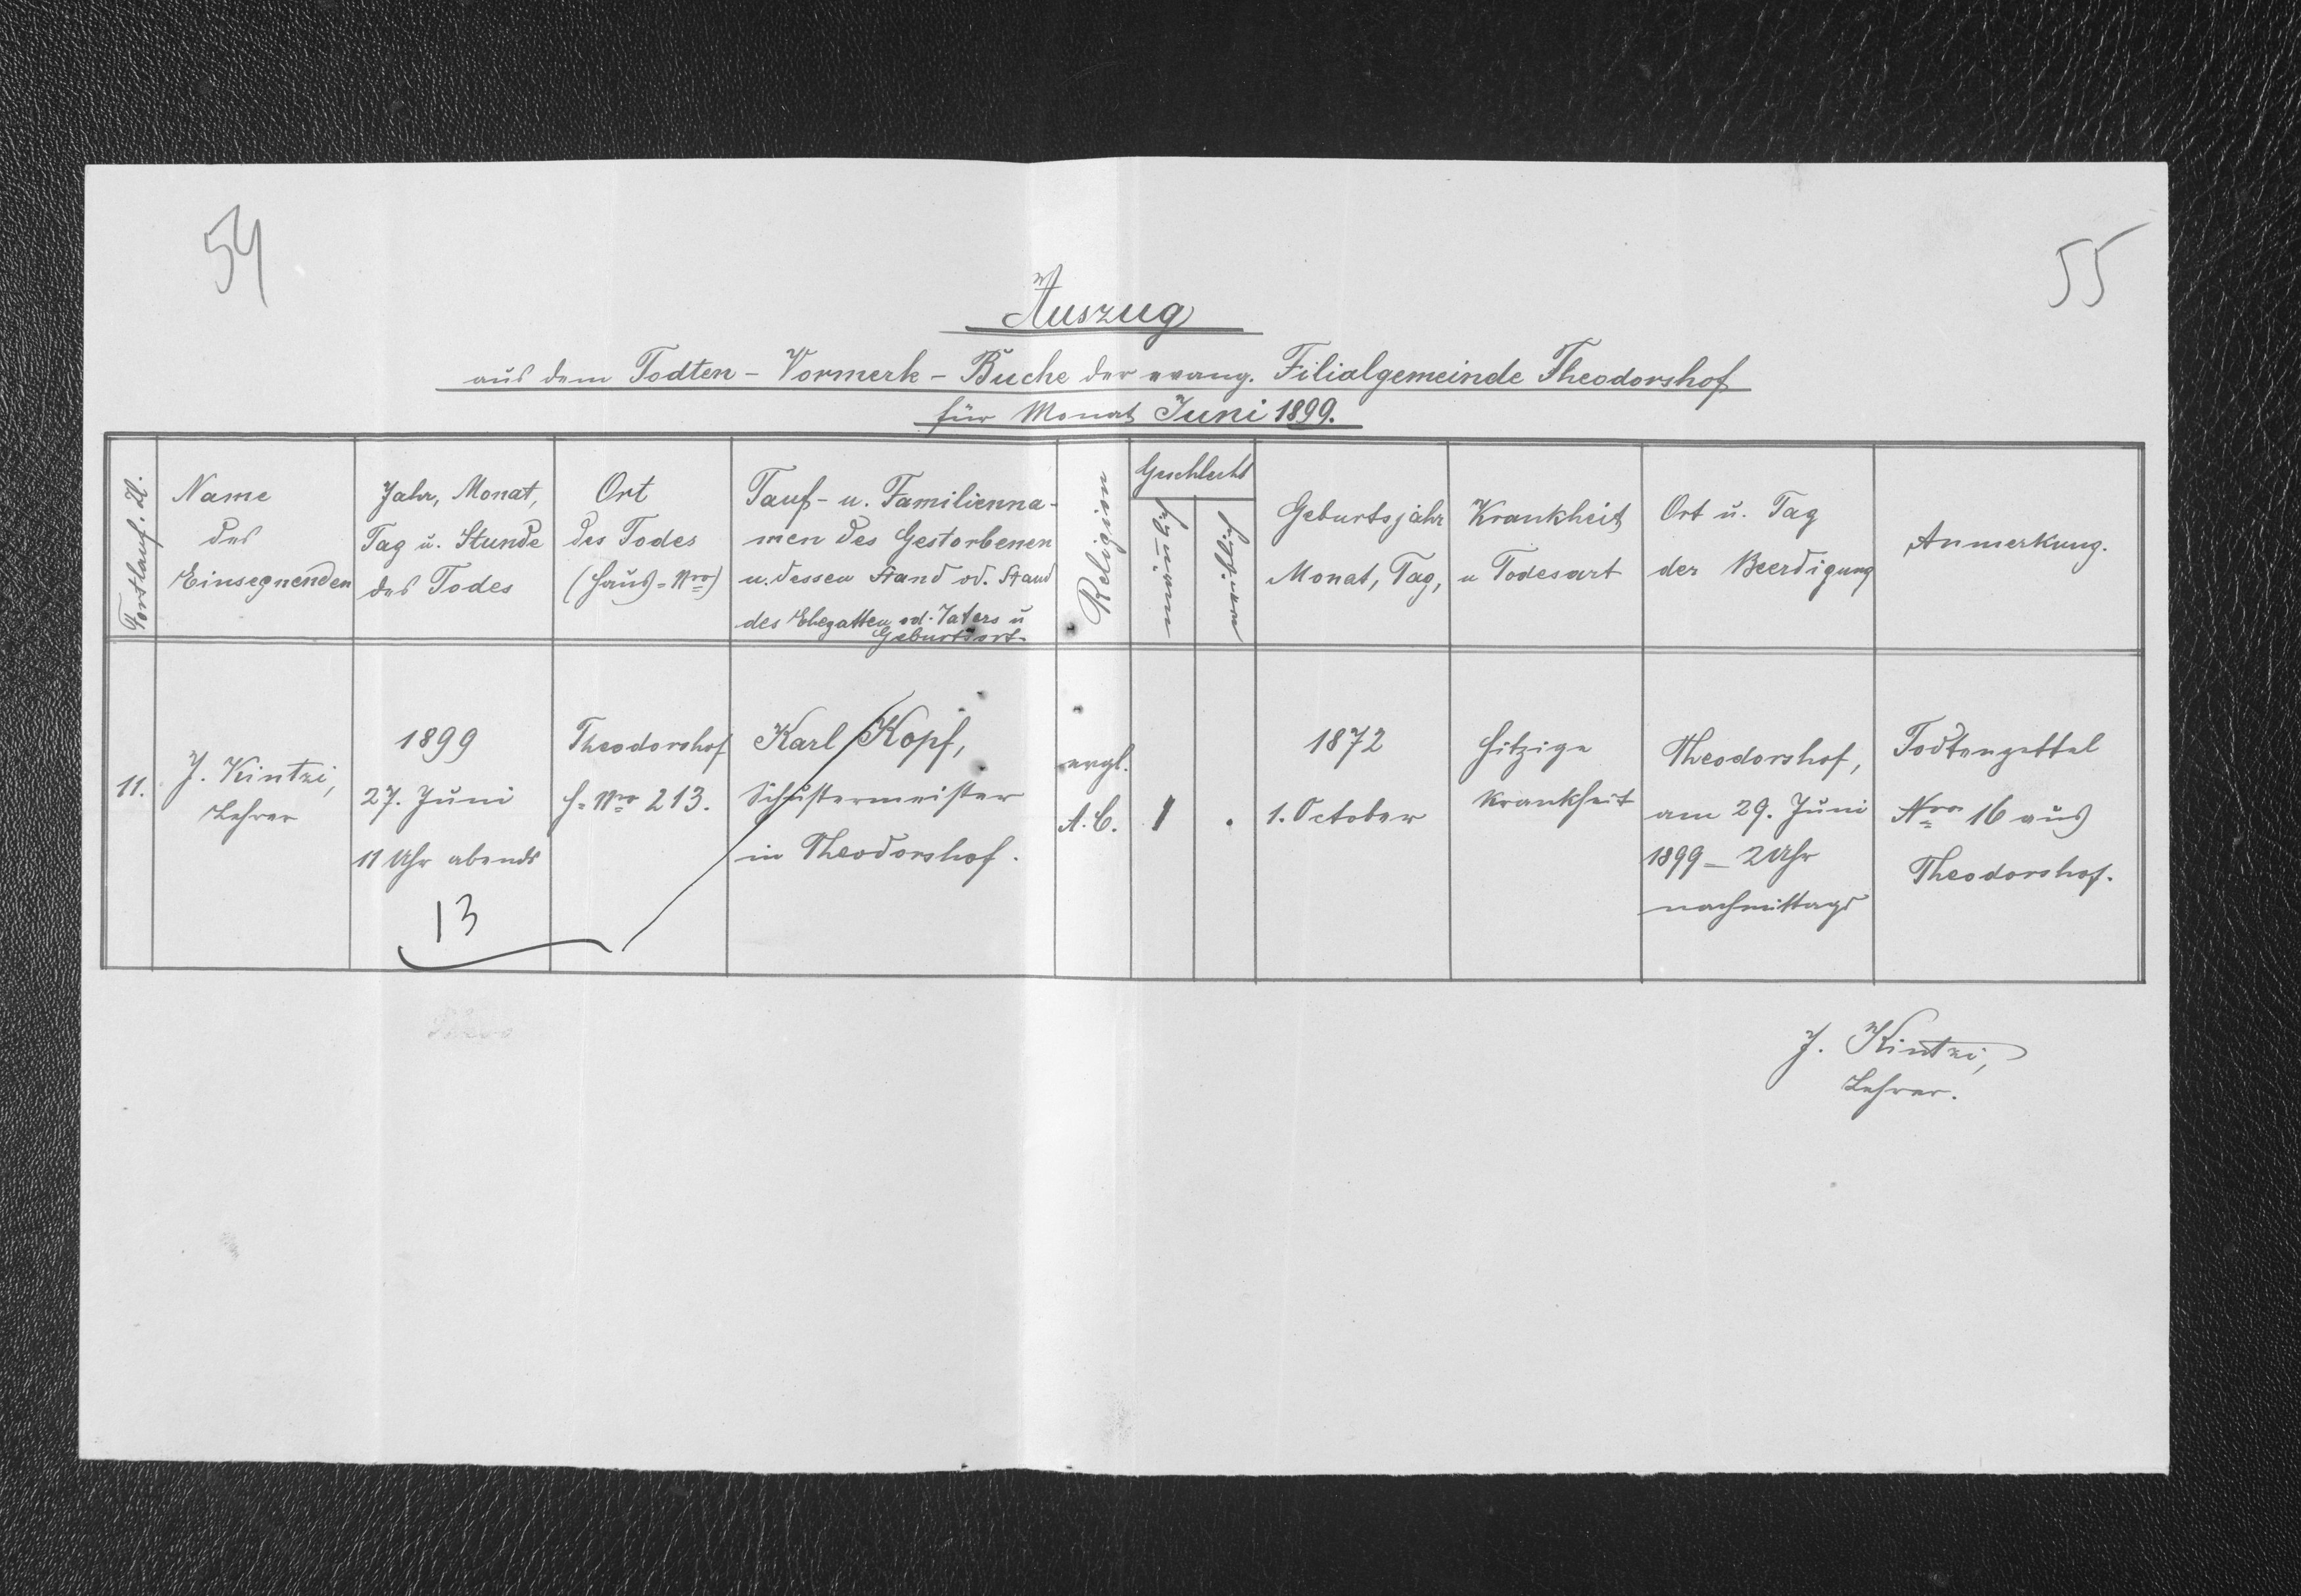 54
55
Auszug
aus dem Todten - Vormerk - Buche der evang. Filialgemeinde Theodorshof
für Monat Juni 1899.
Fortlauf. Z.
Name
des
Einsegnenden
Jahr, Monat,
Tag u. Stunde
des Todes
Ort
des Todes
(Haus = Nro)
Tauf- u. Familienna-
men des Gestorbenen
u. dessen Stand od. Stand
des Ehegatten od. Vaters u
Geburtsort
Religion
Geschlecht
männlich
weiblich
Geburtsjahr
Monat, Tag,
Krankheit
u Todesart
Ort u. Tag
der Beerdigung
Anmerkung.
11.
J. Kintzi,
Lehrer
1899
27. Juni
11 Uhr abends
13
Theodorshof
H= Nro 213.
Karl Kopf,
Schustermeister
in Theodorshof.
evgl.
A. C.
1
.
1872
1. October
Hitzige
Krankheit
Theodorshof,
am 29. Juni
1899 – 2 Uhr
nachmittags
Todtenzettel
Nro 16 aus
Theodorshof.
J. Kintzi,
Lehrer.